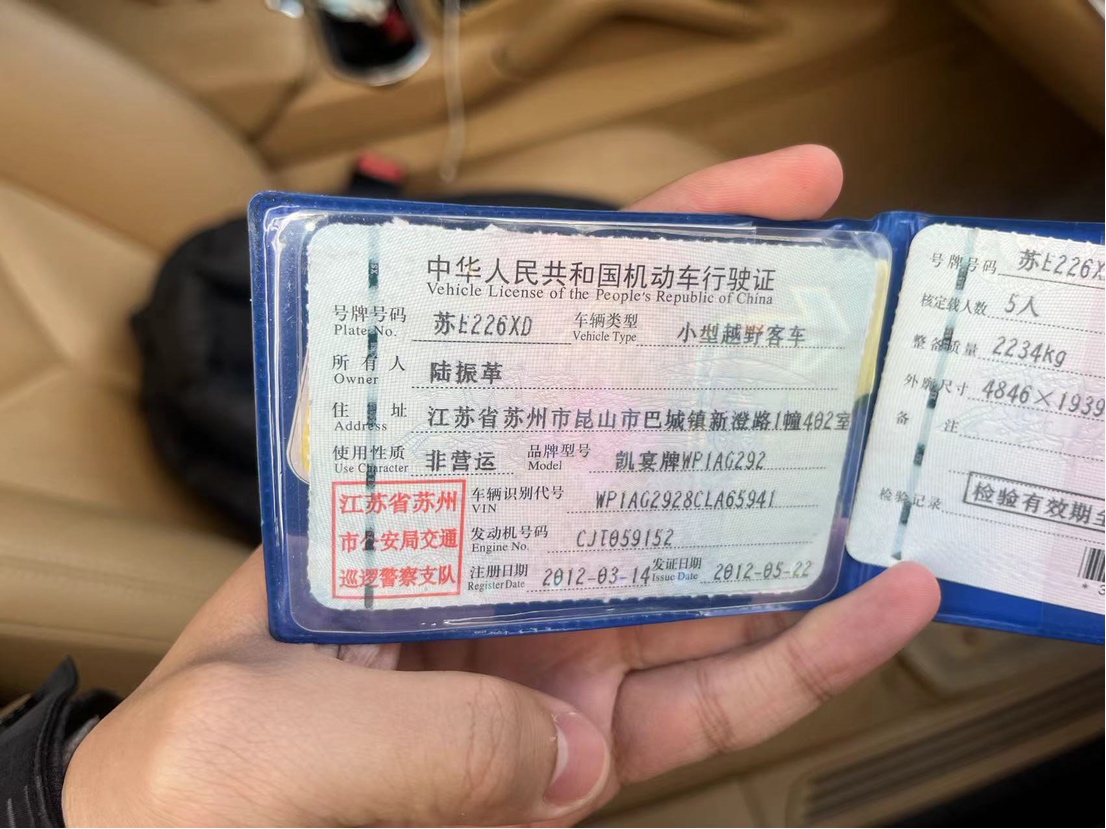 中华人民共和国机动车行驶证
Vehicle License of the People's Republic of China
号牌号码 苏E226XD 车辆类型 小型越野客车
Plate No. Vehicle Type
所有人 陆振革
Owner
住址 江苏省苏州市昆山市巴城镇新澄路1幢402室
Address
使用性质 非营运 品牌型号 凯宴牌WP1AG292
Use Character Model
江苏省苏州
市公安局交通
巡逻警察支队
车辆识别代号 WP1AG2928CLA65941
VIN
发动机号码 CJT059152
Engine No.
注册日期 2012-03-14 发证日期 2012-05-22
Register Date Issue Date
号牌号码 苏E226X
核定载人数 5人
整备质量 2234kg
外廓尺寸 4846×1939
备注
检验记录 检验有效期至